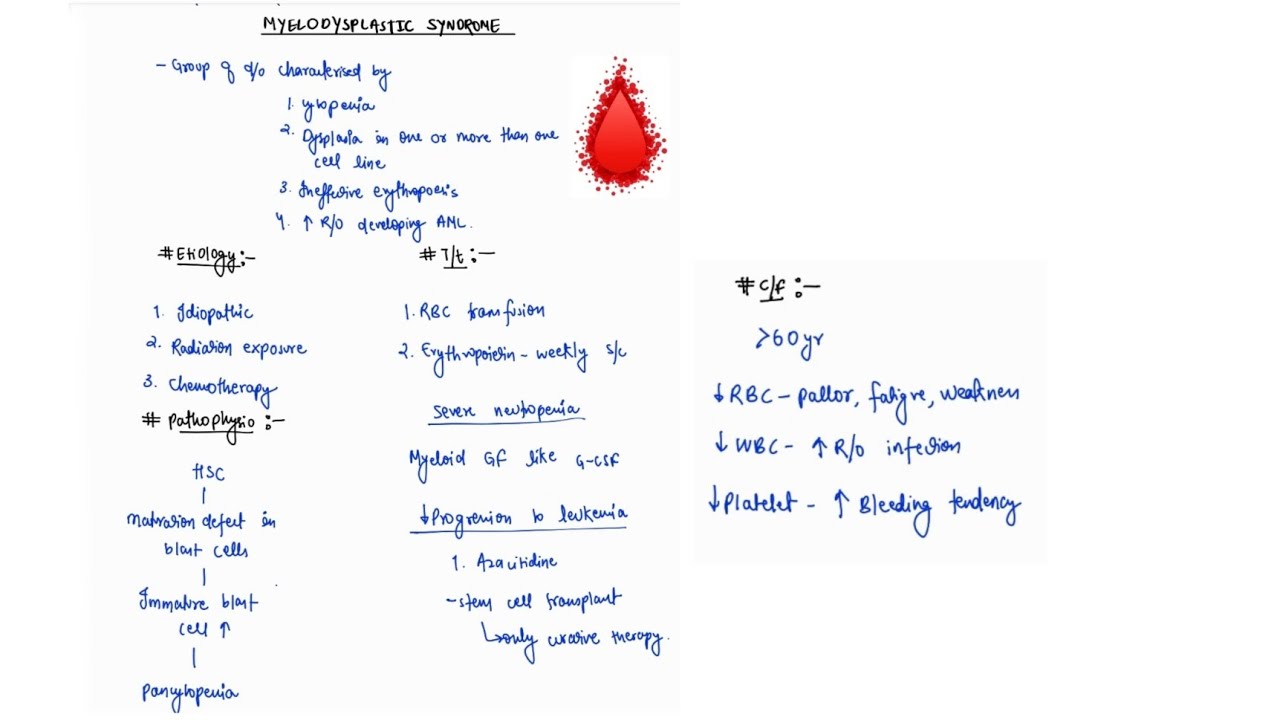 MYELODYSPLASTIC SYNDROME
- Group of d/o characterised by
1. Cytopenia
2. Dysplasia in one or more than one
cell line
3. Ineffective erythropoesis
4. ↑ R/O developing AML.
# Etiology :-
1. Idiopathic
2. Radiation exposure
3. Chemotherapy
# Pathophysio :-
HSC
|
Maturation defect in
blast cells
|
Immature blast
cell ↑
|
Pancytopenia
# T/t :-
1. RBC transfusion
2. Erythropoietin - weekly s/c
Severe neutropenia
Myeloid GF like G-CSF
↓ Progression to leukemia
1. Azacitidine
- stem cell transplant
↳ only curative therapy.
# C/f :-
>60 yr
↓ RBC - pallor, fatigue, weakness
↓ WBC - ↑ R/O infection
↓ Platelet - ↑ Bleeding tendency